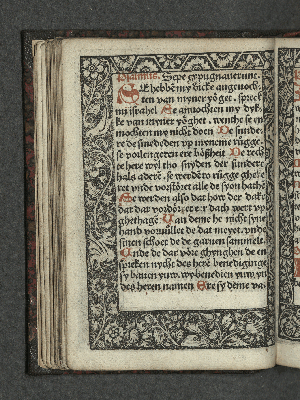 Psalmus. Sepe expugnauerunt.
SE hebbē my vicke angeuoch
ten van myner yoget. spreck
nu israhel Se anuochten my dyk
ke van myner yoghet. wente se en
mochten my nicht doen De sunde
re de smededen vp myneme rügge.
se vorlengeren ere bößheit De rech
te here wyl tho snyden der sundere
hals adere. se werdē to rügge ghele
ret vnde vorstöret alle de syon hathē
Se werden also dat how der dake
dat dar vordörret eer dath wert vp
ghethage Van deme he nicht syne
hand vorvullet de dat meyet. vnde
sinen schoet de de garuen sammelt.
Unde de dar vöre ghynghen de en
spreken nycht des herē benedginge
sy bauen yuw. wy benedien yuw yn
des heren namen Ere sy deme va